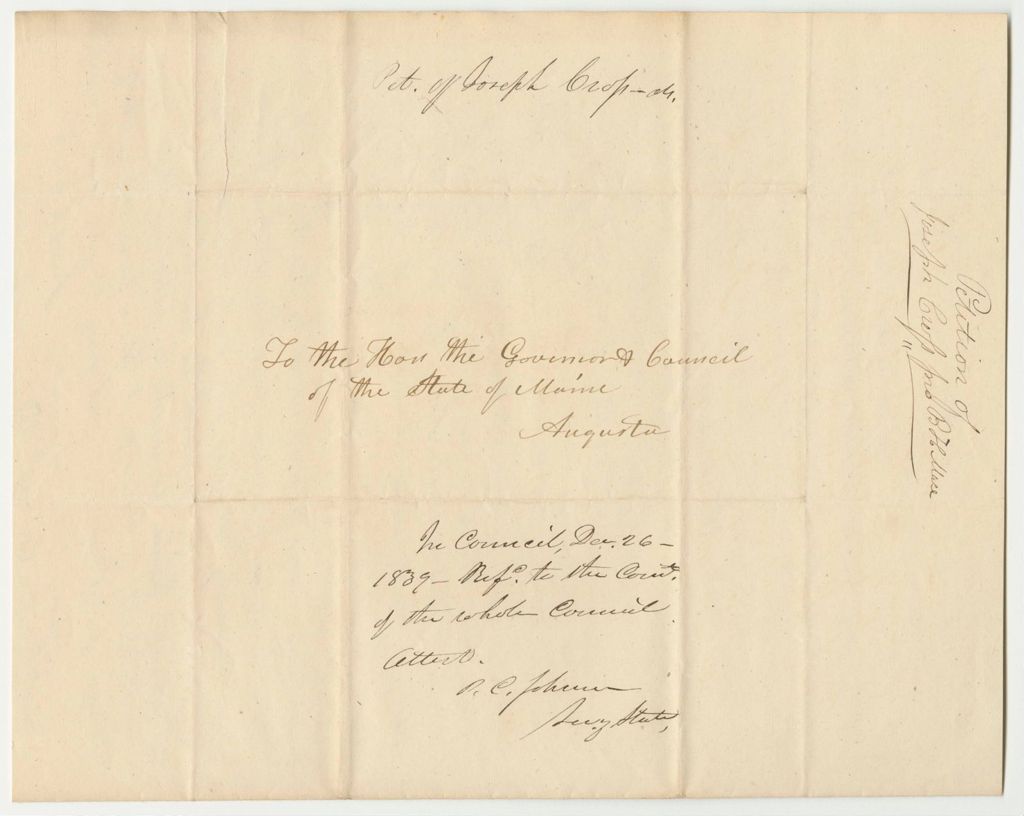 Pet. of Joseph Cross - als.
To the Hon the Governor & Council
of the State of Maine
Augusta
In Council, Dec. 26 -
1839 - Refd. to the Comte.
of the whole Council
Attest.
P. C. Johnson
Secy State,
Petition of
Joseph Cross pro